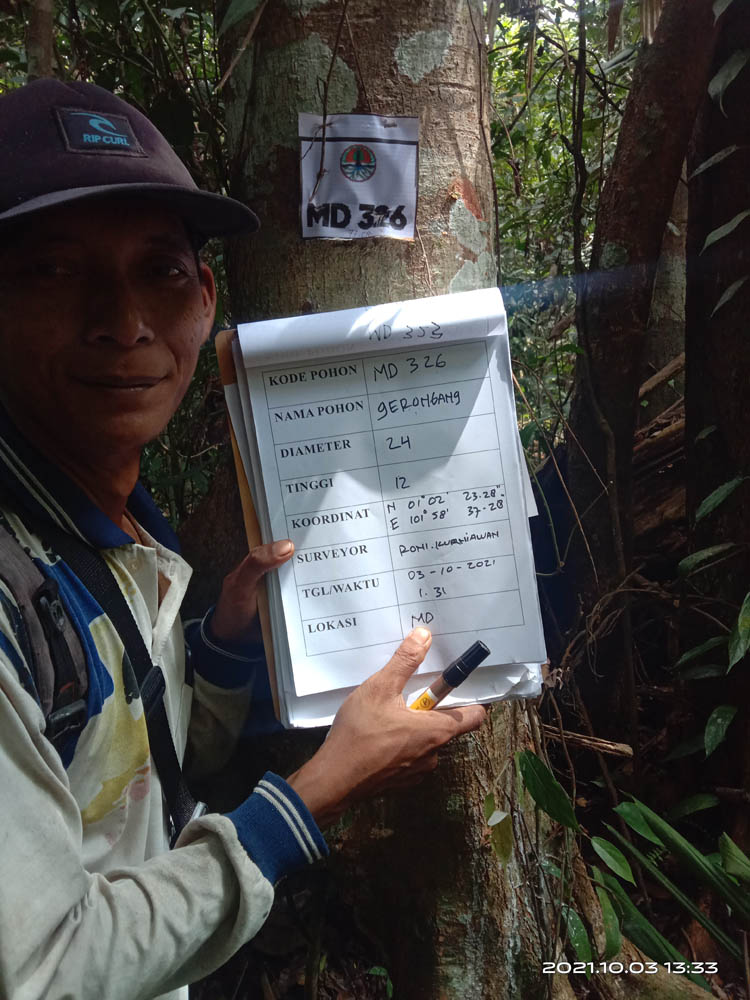 RIP CURL
MD 326
MD 353
KODE POHON MD 326
NAMA POHON GERONGANG
DIAMETER 24
TINGGI 12
KOORDINAT N 01° 02' 23.28"
E 101° 58' 37-28
SURVEYOR RONI.KURNIAWAN
TGL/WAKTU 03-10-2021
1.31
LOKASI MD
2021.10.03 13:33